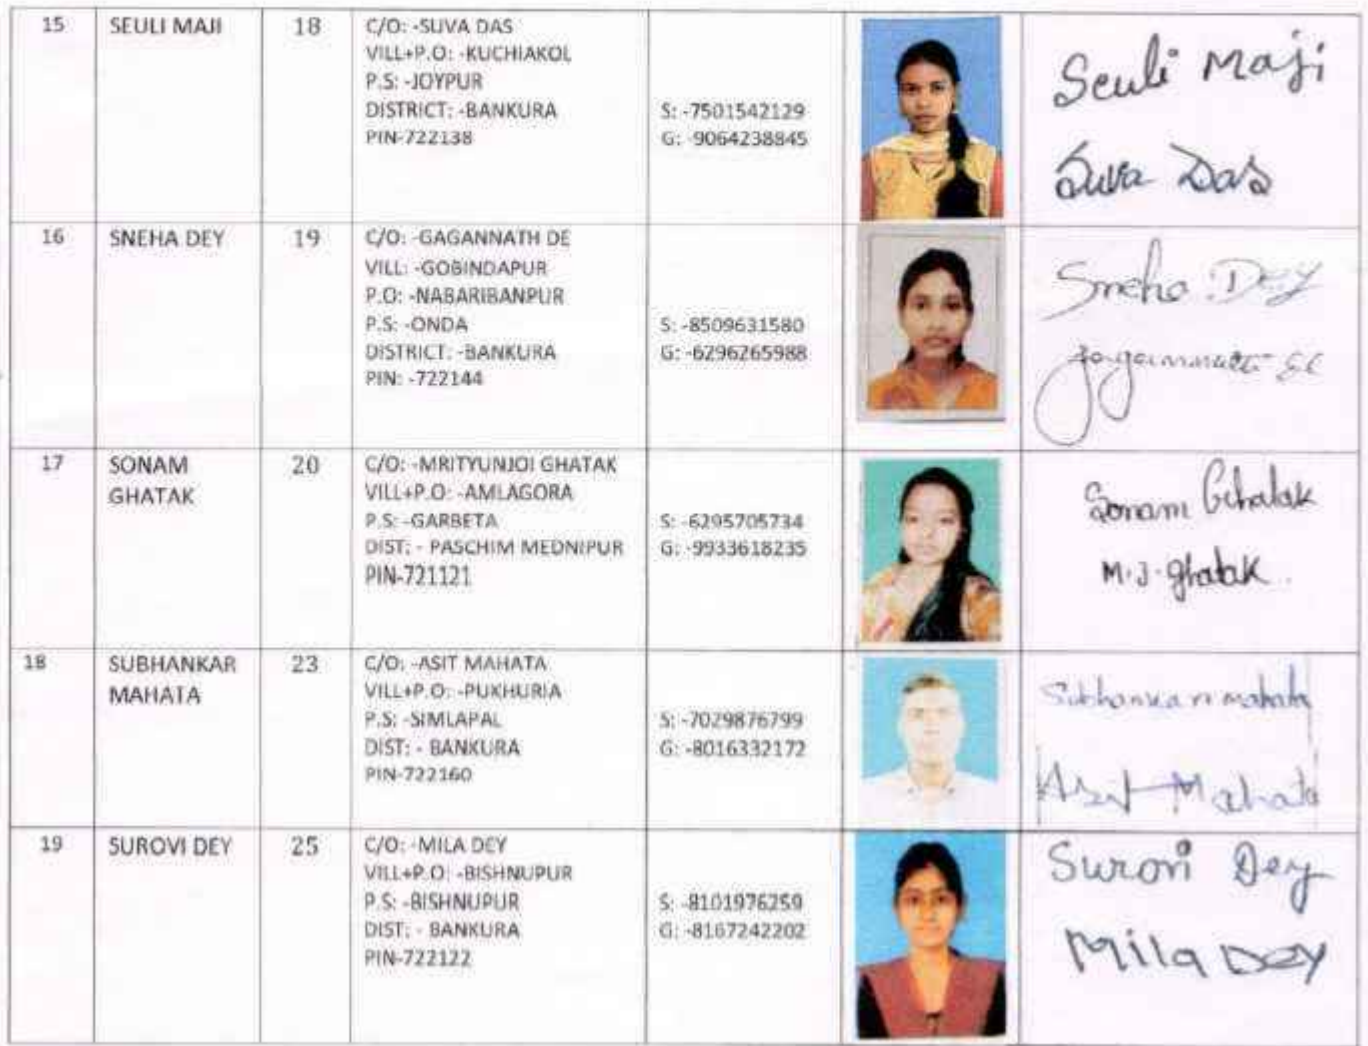 15
SEULI MAJI
18
C/O: -SUVA DAS
VILL+P.O: -KUCHIAKOL
P.S: -JOYPUR
DISTRICT: -BANKURA
PIN-722138
S: -7501542129
G: -9064238845
Seuli Maji
Suva Das
16
SNEHA DEY
19
C/O: -GAGANNATH DE
VILL: -GOBINDAPUR
P.O: -NABARIBANPUR
P.S: -ONDA
DISTRICT: -BANKURA
PIN: -722144
S: -8509631580
G: -6296265988
Sneha Dey
17
SONAM
GHATAK
20
C/O: -MRITYUNJOI GHATAK
VILL+P.O: -AMLAGORA
P.S: -GARBETA
DIST: - PASCHIM MEDNIPUR
PIN-721121
S: -6295705734
G: -9933618235
Sonam Ghatak
M.J. Ghatak
18
SUBHANKAR
MAHATA
23
C/O: -ASIT MAHATA
VILL+P.O: -PUKHURIA
P.S: -SIMLAPAL
DIST: - BANKURA
PIN-722160
S: -7029876799
G: -8016332172
Subhankar mahata
Asit Mahata
19
SUROVI DEY
25
C/O: -MILA DEY
VILL+P.O: -BISHNUPUR
P.S: -BISHNUPUR
DIST: - BANKURA
PIN-722122
S: -8101976259
G: -8167242202
Surovi Dey
Mila DEY